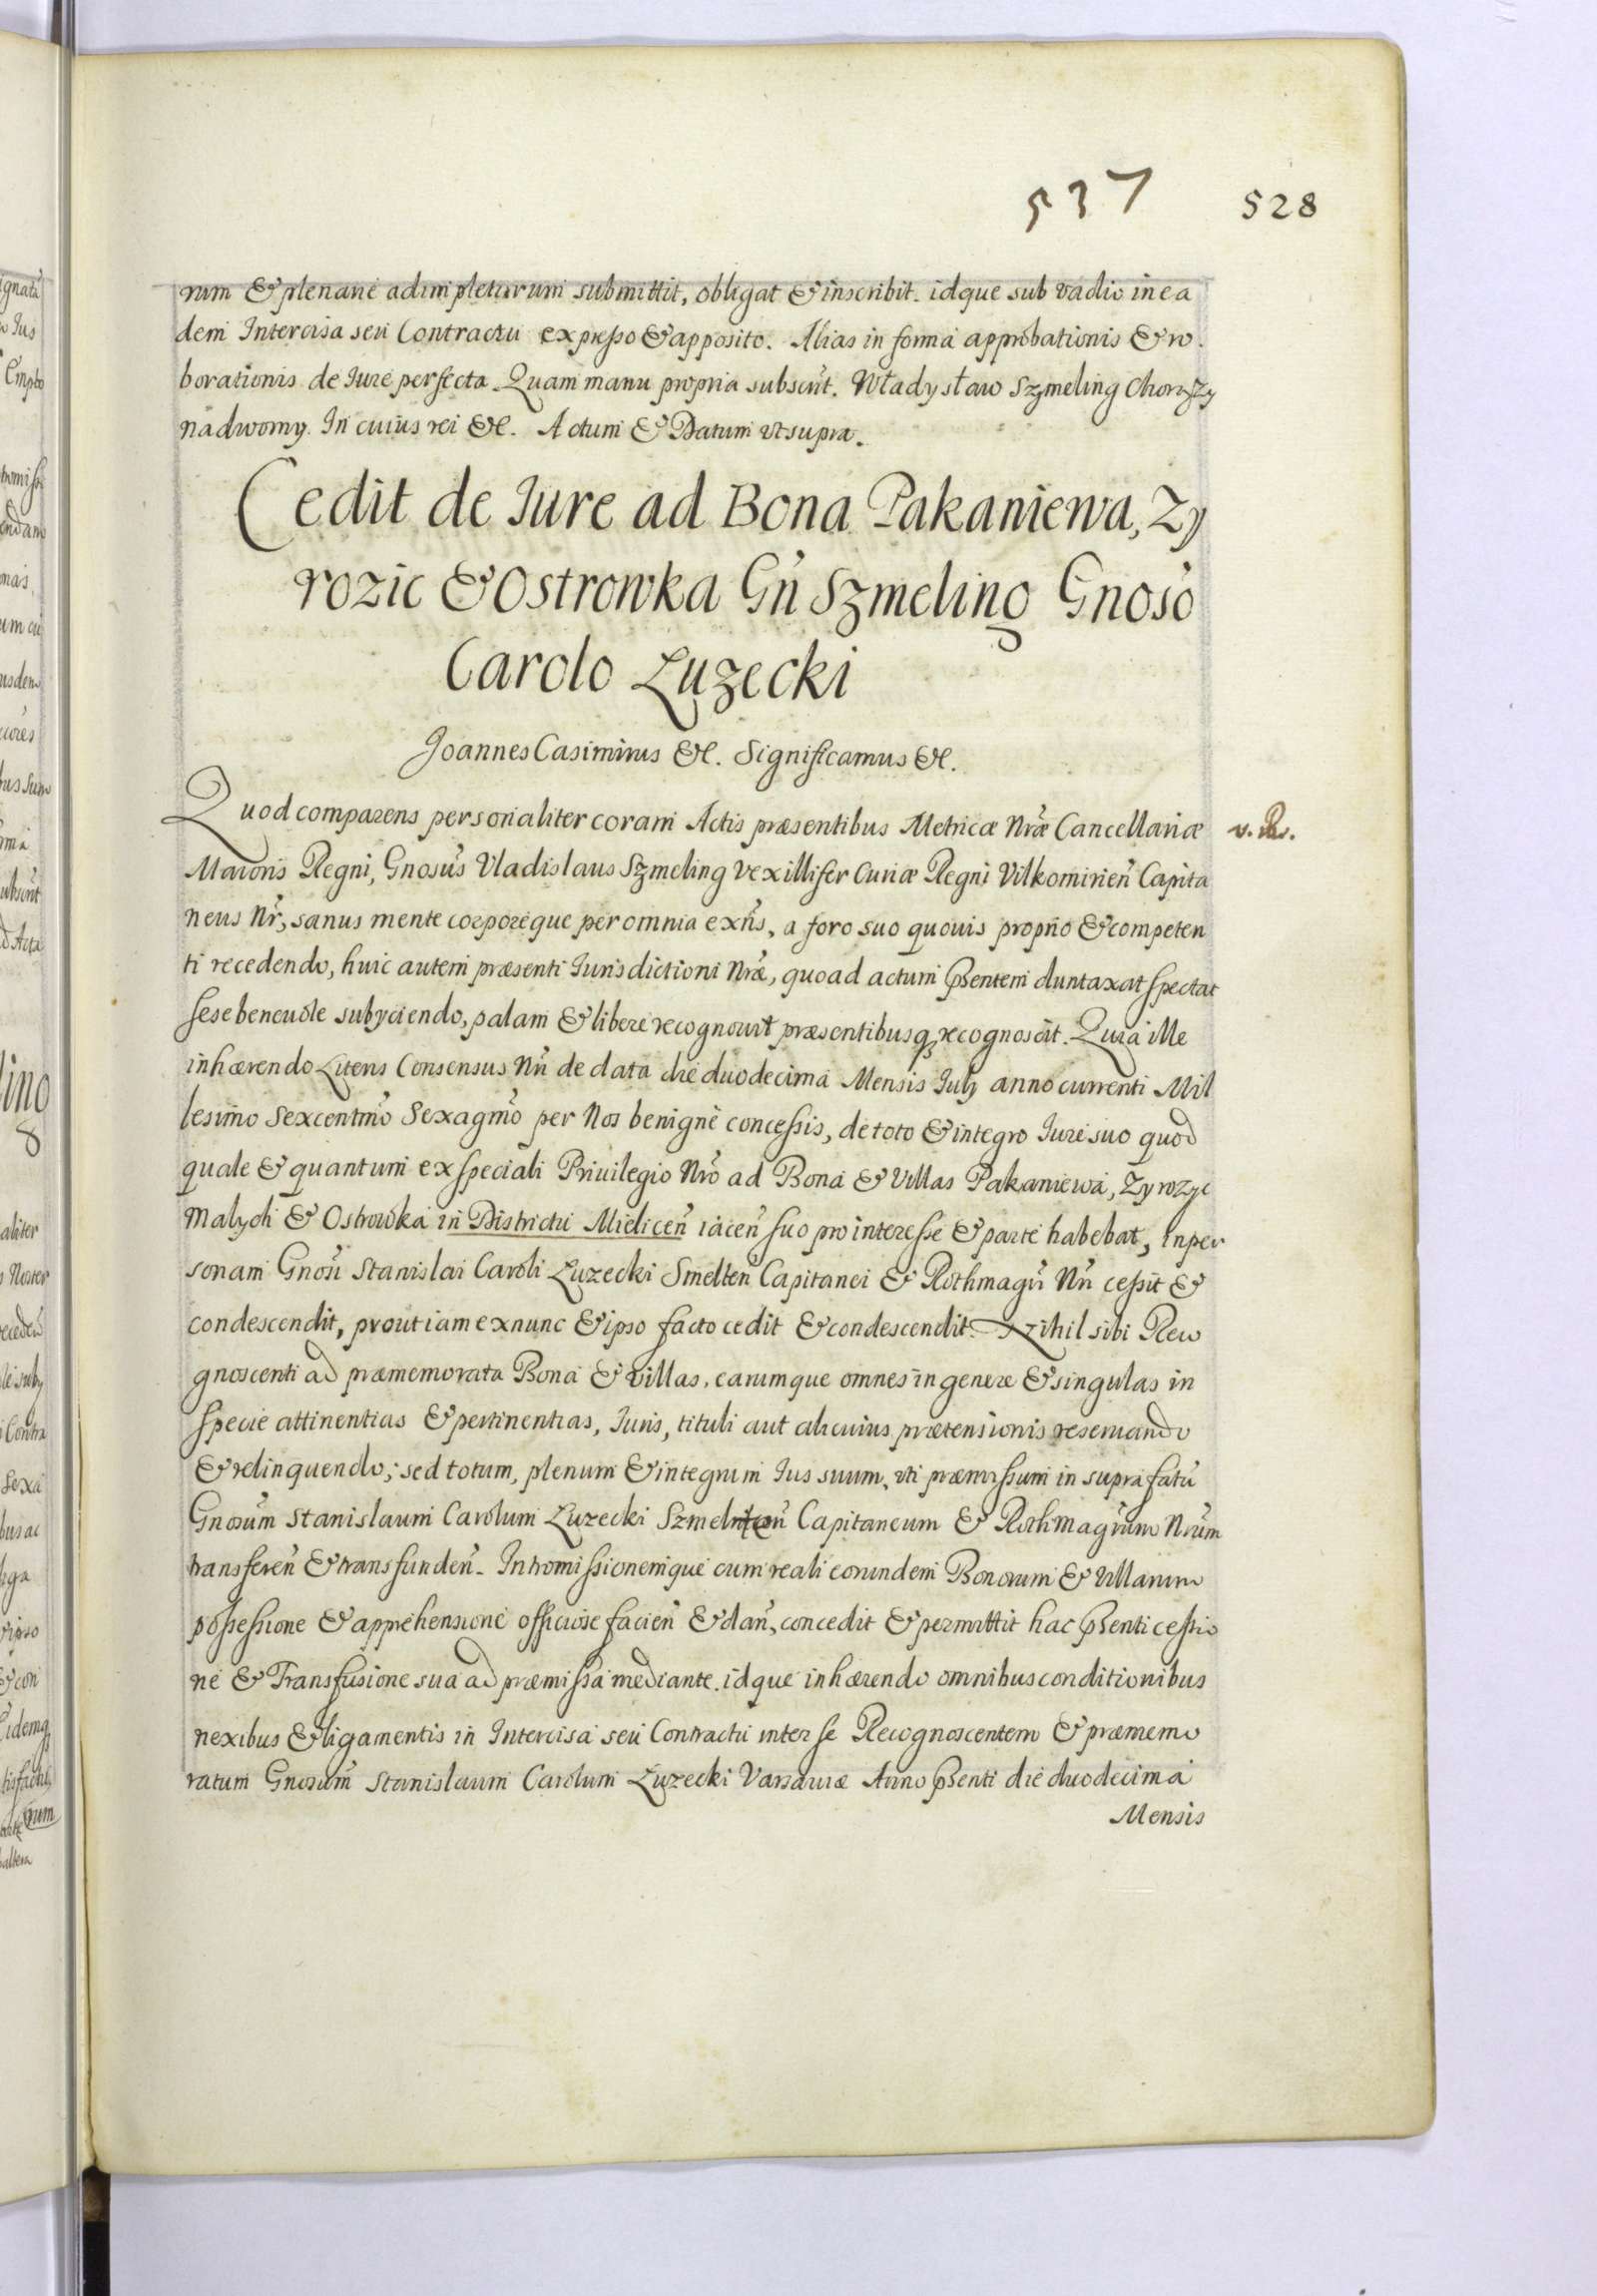 537 528
rum & plenarie adimpleturum submittit, obligat & inscribit. idque sub vadio in ea
dem Intercisa seu Contractu expresso & apposito. Alias in forma approbationis & ro
borationis de Iure perfecta. Quam manu propria subscrit. Władysław Szmeling Chorąży
nadworny. In cuius rei &c. Actum & Datum ut supra.
Cedit de Iure ad Bona Pakaniewa, Zy
rozic & Ostrowka Gn̄ Szmeling Gnoso
Carolo Łuzecki
Joannes Casimirus &c. Significamus &c.
Quod comparens personaliter coram Actis præsentibus Metricæ Nræ Cancellariæ
Maioris Regni, Gnosus Vladislaus Szmeling Vexillifer Curiæ Regni Vilkomirien̄ Capita
neus Nr̄, sanus mente corporeque per omnia exn̄s, a foro suo quouis proprio & competen
ti recedendo, huic autem præsenti Iurisdictioni Nræ, quoad actum pn̄sentem duntaxat spectat
sese beneuole subyciendo, palam & libere recognouit præsentibusq; recognoscit. Quia ille
inhærendo Literis Consensus Nri de data die duodecima Mensis July anno currenti Mil
lesimo Sexcentmo Sexagmo per Nos benignè concessis, de toto & integro Iure suo quod
quale & quantum ex speciali Priuilegio Nro ad Bona & Villas Pakaniewa, Zyrozyc
Malych & Ostrowka in Districtu Mielicen̄ iacen̄ suo pro interesse & parte habebat, in per
sonam Gnosi Stanislai Caroli Łuzecki Smelten̄ Capitanei & Rothmagri Nri cessit &
condescendit, prout iam ex nunc & ipso facto cedit & condescendit. Nihil sibi Reco
gnoscenti ad præmemorata Bona & villas, earumque omnes in genere & singulas in
specie attinentias & pertinentias, Iuris, tituli aut alicuius prætensionis reseruando
& relinquendo; sed totum, plenum & integrum Ius suum, uti præmissum in supra fatū
Gnosum Stanislaum Carolum Łuzecki Szmelten̄ Capitaneum & Rothmagrum Nrum
transferen̄ & transfunden̄. Intromissionemque cum reali eorundem Bonorum & Villarum
possessione & apprehensione officiose facien̄ & dan̄, concedit & permittit hac pn̄senti cessio
ne & Transfusione sua ad præmissa mediante. idque inhærendo omnibus conditionibus
nexibus & ligamentis in Intercisa seu Contractu inter se Recognoscentem & præmemo
ratum Gnosum Stanislaum Carolum Łuzecki Varsauiæ Anno pn̄senti die duodecima
Mensis